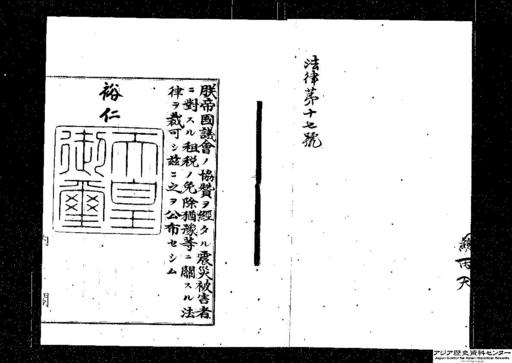 法律第十七號
朕帝國議會ノ協贊ヲ經タル震災被害者
ニ對スル租稅ノ免除猶豫等ニ關スル法
律ヲ裁可シ茲ニ之ヲ公布セシム
裕仁
天皇
御璽
内閣
アジア歴史資料センター
Japan Center for Asian Historical Records